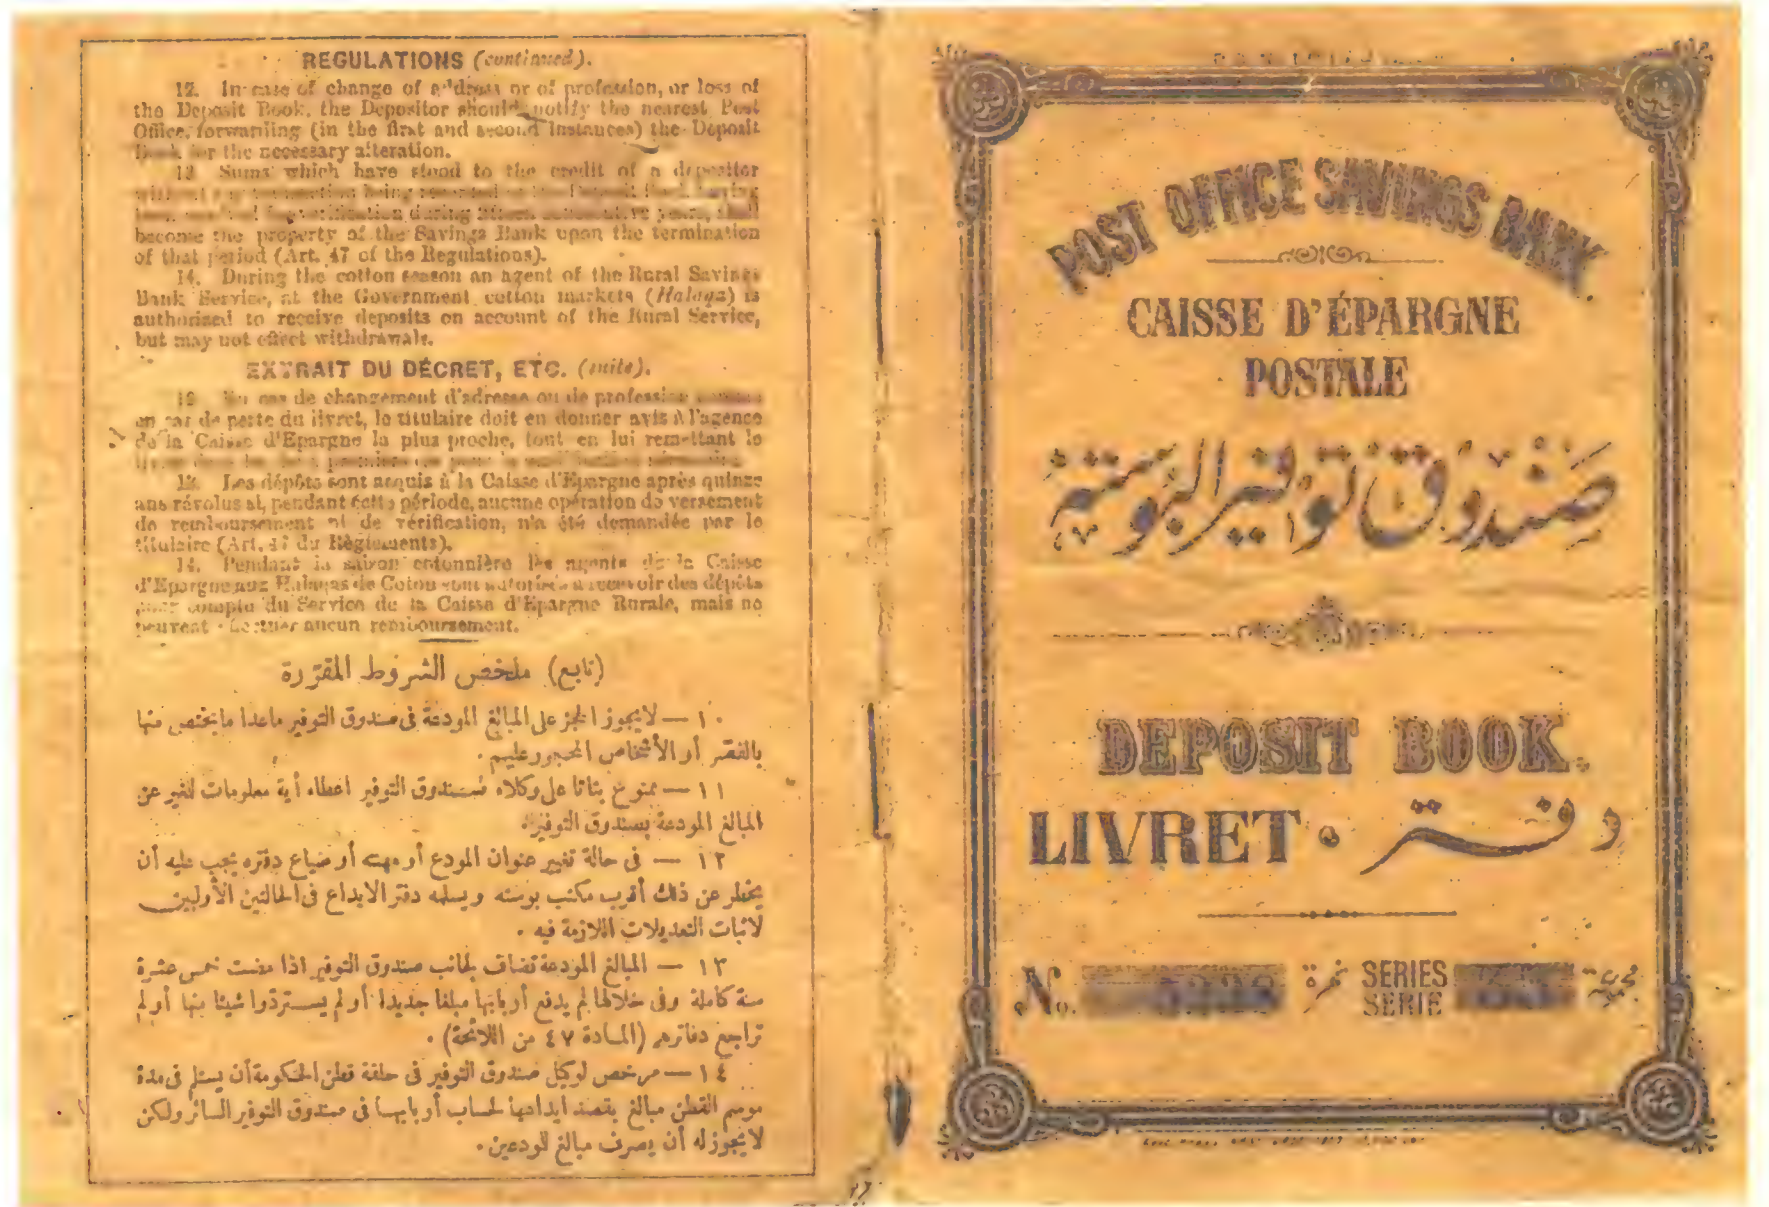 REGULATIONS (continued).
12. In case of change of address or of profession, or loss of
the Deposit Book, the Depositor should notify the nearest Post
Office, forwarding (in the first and second instances) the Deposit
Book for the necessary alteration.
13. Sums which have stood to the credit of a depositor
without any transaction being recorded in the Deposit Book having
been for verification during fifteen consecutive years, shall
become the property of the Savings Bank upon the termination
of that period (Art. 47 of the Regulations).
14. During the cotton season an agent of the Rural Savings
Bank Service, at the Government cotton markets (Halaqa) is
authorised to receive deposits on account of the Rural Service,
but may not effect withdrawals.
EXTRAIT DU DÉCRET, ETC. (suite).
12. En cas de changement d'adresse ou de profession
en cas de perte du livret, le titulaire doit en donner avis à l'agence
de la Caisse d'Epargne la plus proche, tout en lui remettant le
13. Les dépôts sont acquis à la Caisse d'Epargne après quinze
ans révolus si, pendant cette période, aucune opération de versement
de remboursement ni de vérification, n'a été demandée par le
titulaire (Art. 47 du Règlements).
14. Pendant la saison cotonnière les agents de la Caisse
d'Epargne aux Halaqas de Coton sont autorisés à recevoir des dépôts
pour compte du Service de la Caisse d'Epargne Rurale, mais ne
peuvent effectuer aucun remboursement.
(تابع) ملخص الشروط المقررة
١٠ — لا يجوز الحجز على المبالغ المودعة فى صندوق التوفير ماعدا ما يختص منها
بالقصر أو الأشخاص المحجور عليهم .
١١ — ممنوع بتاتا على وكلاء صندوق التوفير اعطاء أية معلومات للغير عن
المبالغ المودعة بصندوق التوفير .
١٢ — فى حالة تغيير عنوان المودع أو مهنته أو ضياع دفتره يجب عليه أن
يخطر عن ذلك أقرب مكتب بوسته ويسلمه دفتر الايداع فى الحالتين الأوليين
لاثبات التعديلات اللازمة فيه .
١٣ — المبالغ المودعة تضاف لجانب صندوق التوفير اذا مضت خمس عشرة
سنة كاملة وفى خلالها لم يدفع أربابها مبلغا جديدا أو لم يستردوا شيئا منها أو لم
تراجع دفاترهم (المادة ٤٧ من اللائحة) .
١٤ — مرخص لوكيل صندوق التوفير فى حلقة قطن الحكومة أن يستلم فى مدة
موسم القطن مبالغ بقصد ايداعها لحساب أربابها فى صندوق التوفير السائر ولكن
لا يجوز له أن يصرف مبالغ للمودعين .
POST OFFICE SAVINGS BANK
CAISSE D'ÉPARGNE
POSTALE
صندوق توفير البوستة
DEPOSIT BOOK.
LIVRET . دفتر
No. نمرة SERIES
SERIE